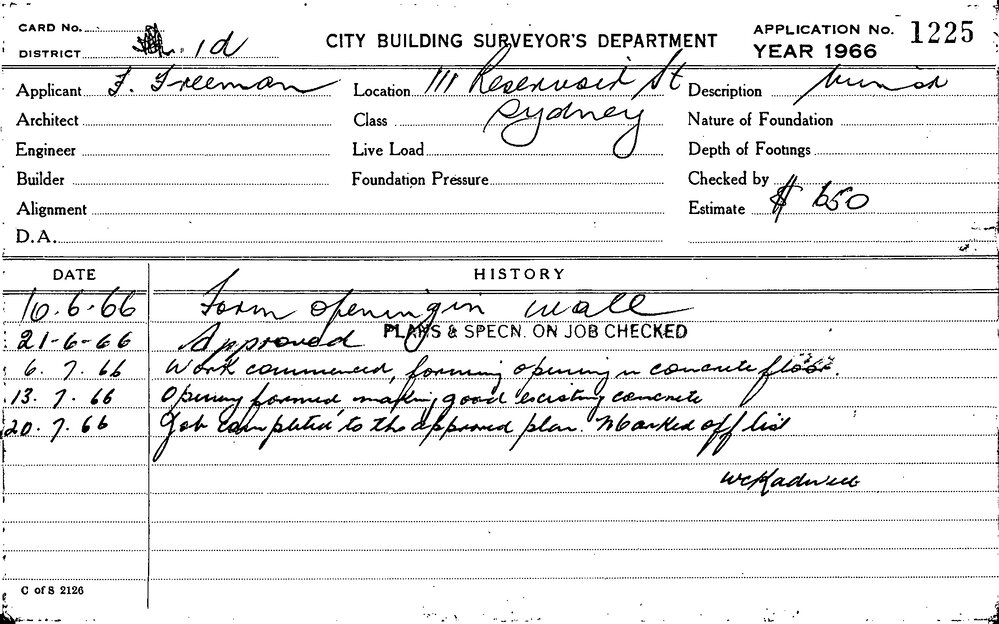 CARD No.
DISTRICT 1d
CITY BUILDING SURVEYOR'S DEPARTMENT
APPLICATION No. 1225
YEAR 1966
Applicant F. Freeman
Location 111 Reservoir St
Sydney
Description
Architect
Class
Nature of Foundation
Engineer
Live Load
Depth of Footings
Builder
Foundation Pressure
Checked by
Alignment
Estimate $ 650
D.A.
DATE HISTORY
10.6.66 Form opening in wall
21-6-66 Approved PLANS & SPECN. ON JOB CHECKED
6. 7. 66 Work commenced, forming opening in concrete floor.
13. 7. 66 Opening formed making good existing concrete
20. 7. 66 Job completed to the approved plan. Marked off list
C of S 2126